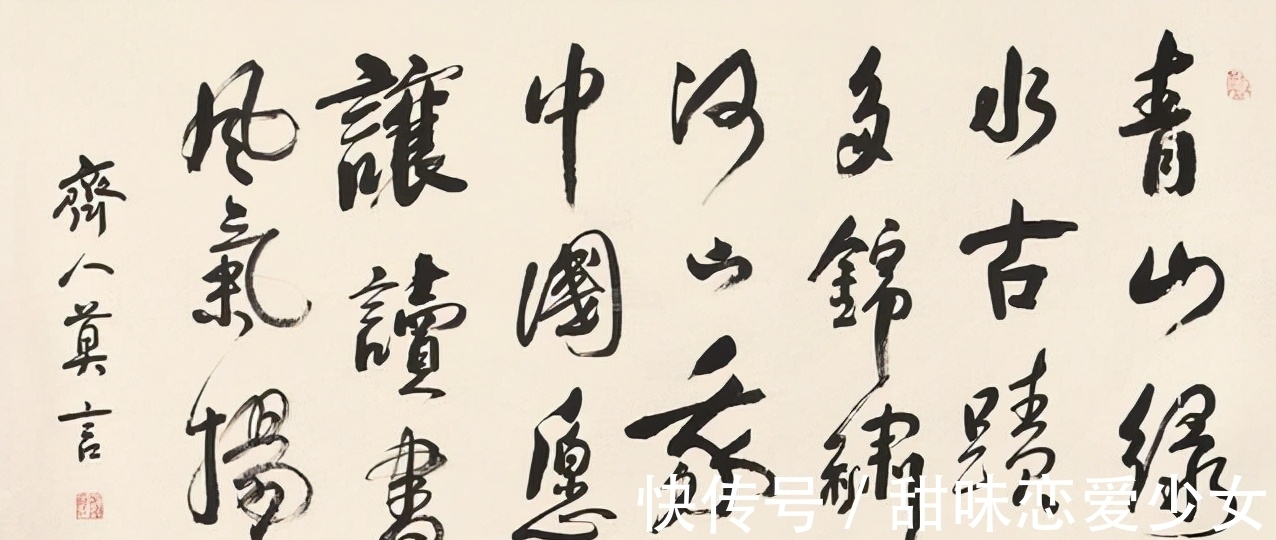 青山绿
水古蹟
多錦繡
河山
中國愿
讓讀書
風氣揚
齊人莫言
快传号 / 甜味恋爱少女